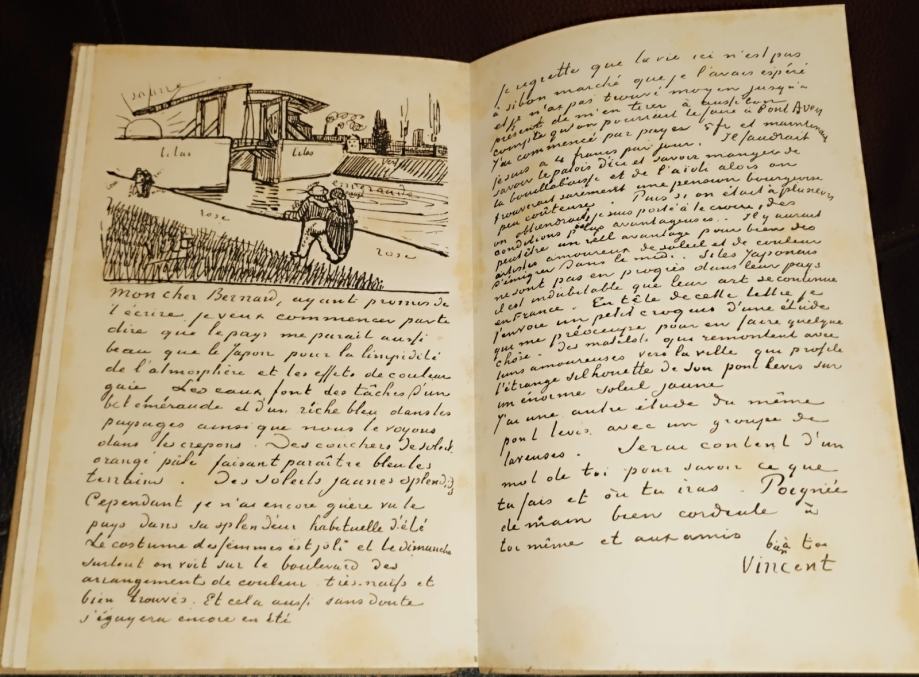 jaune
lilas
lilas
vert
emeraude
rose
rose
Mon cher Bernard, ayant promis de
t'écrire je veux commencer par te
dire que le pays me parait aussi
beau que le Japon pour la limpidité
de l'atmosphère et les effets de couleur
gaie Les eaux font des tâches d'un
bel éméraude et d'un riche bleu dans les
paysages ainsi que nous le voyons
dans les crepons. Des couchers de soleil
orangé pâle faisant paraître bleu les
terrains. Des soleils jaunes splendides
Cependant je n'ai encore guère vu le
pays dans sa splendeur habituelle d'été
Le costume des femmes est joli et le dimanche
surtout on voit sur le boulevard des
arrangements de couleur très naïfs et
bien trouvés. Et cela aussi sans doute
s'égayera encore en été
Je regrette que la vie ici n'est pas
à si bon marché que je l'avais espéré
et je n'ai pas trouvé moyen jusqu'à
présent de m'en tirer à aussi bon
compte qu'on pourrait le faire à Pont Aven
J'ai commencé par payer 5 fr et maintenant
je suis à 4 francs par jour. Il faudrait
savoir le patois d'ici et savoir manger de
la bouillabaisse et de l'aïoli alors on
trouverait surement une pension bourgeoise
peu coûteuse. Puis si on était à plusieurs
on obtiendrait je suis porté à le croire, des
conditions plus avantageuses. Il y aurait
peutêtre un réel avantage pour bien des
artistes amoureux de soleil et de couleur
d'émigrer dans le midi. Si les Japonais
ne sont pas en progrès dans leur pays
il est indubitable que leur art se continue
en France. En tête de cette lettre je
t'envoie un petit croquis d'une étude
qui me préoccupe pour en faire quelque
chose. Des matelots qui remontent avec
leurs amoureuses vers la ville qui profile
l'étrange silhouette de son pont levis sur
un énorme soleil jaune
J'ai une autre étude du même
pont levis avec un groupe de
laveuses. Serai content d'un
mot de toi pour savoir ce que
tu fais et où tu iras. Poignée
de main bien cordiale à
toi même et aux amis bien à toi
Vincent